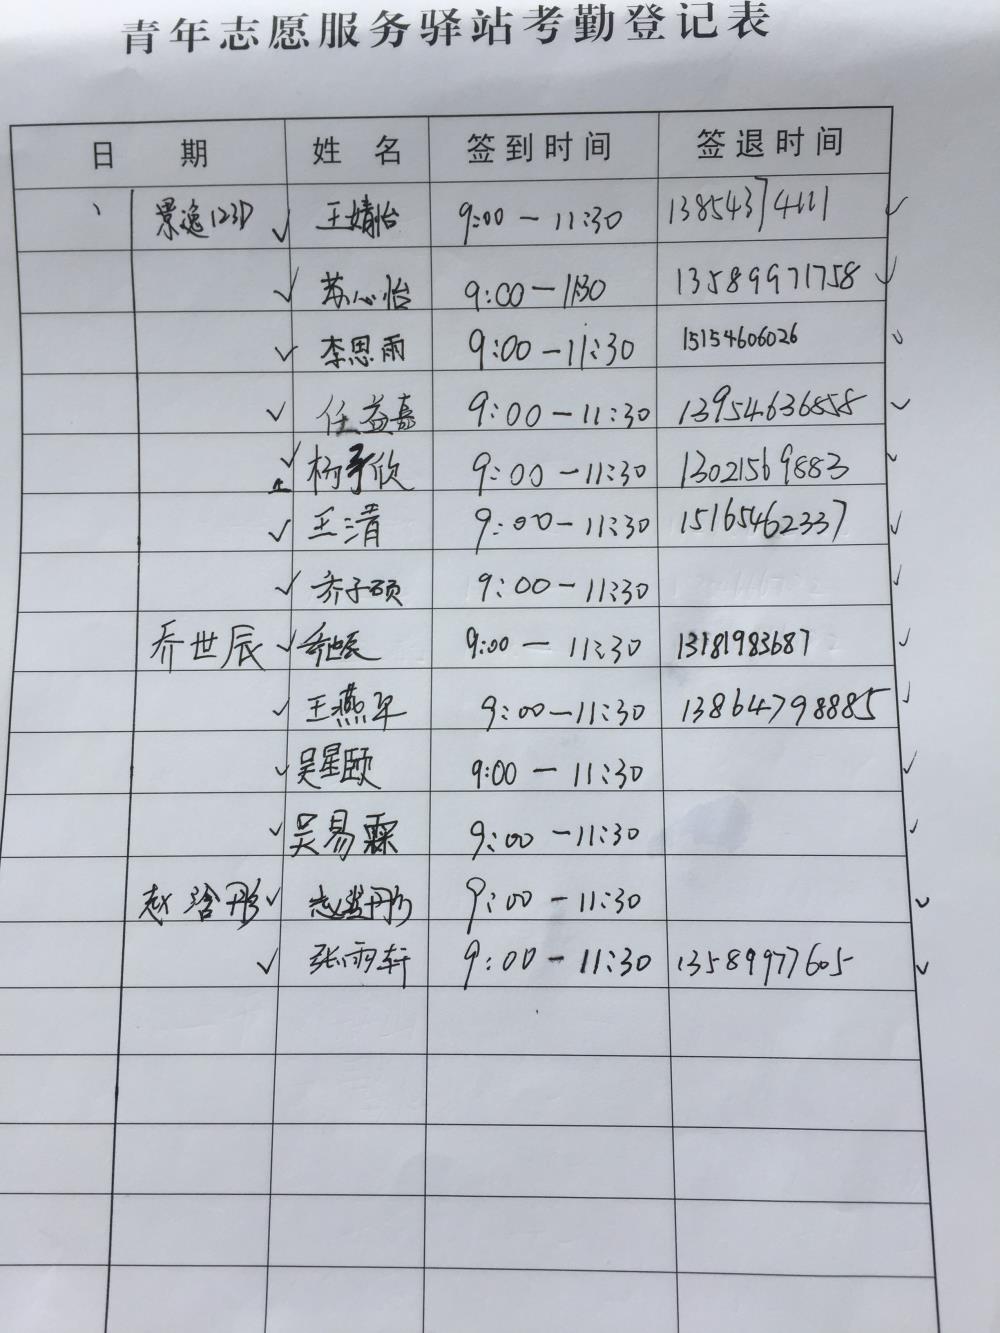 青年志愿服务驿站考勤登记表
日 期 姓 名 签到时间 签退时间
景逸123D 王婧怡 9:00 - 11:30 13854374111
苏心怡 9:00 - 11:30 13589971758
李思雨 9:00 - 11:30 15154606026
任益嘉 9:00 - 11:30 13954636858
杨予欣 9:00 - 11:30 13021569883
王清 9:00 - 11:30 15165462337
乔子硕 9:00 - 11:30
乔世辰 乔世辰 9:00 - 11:30 13181983687
王燕平 9:00 - 11:30 13864798885
吴星颐 9:00 - 11:30
吴易霖 9:00 - 11:30
赵浛彤 9:00 - 11:30
张雨轩 9:00 - 11:30 13589977605